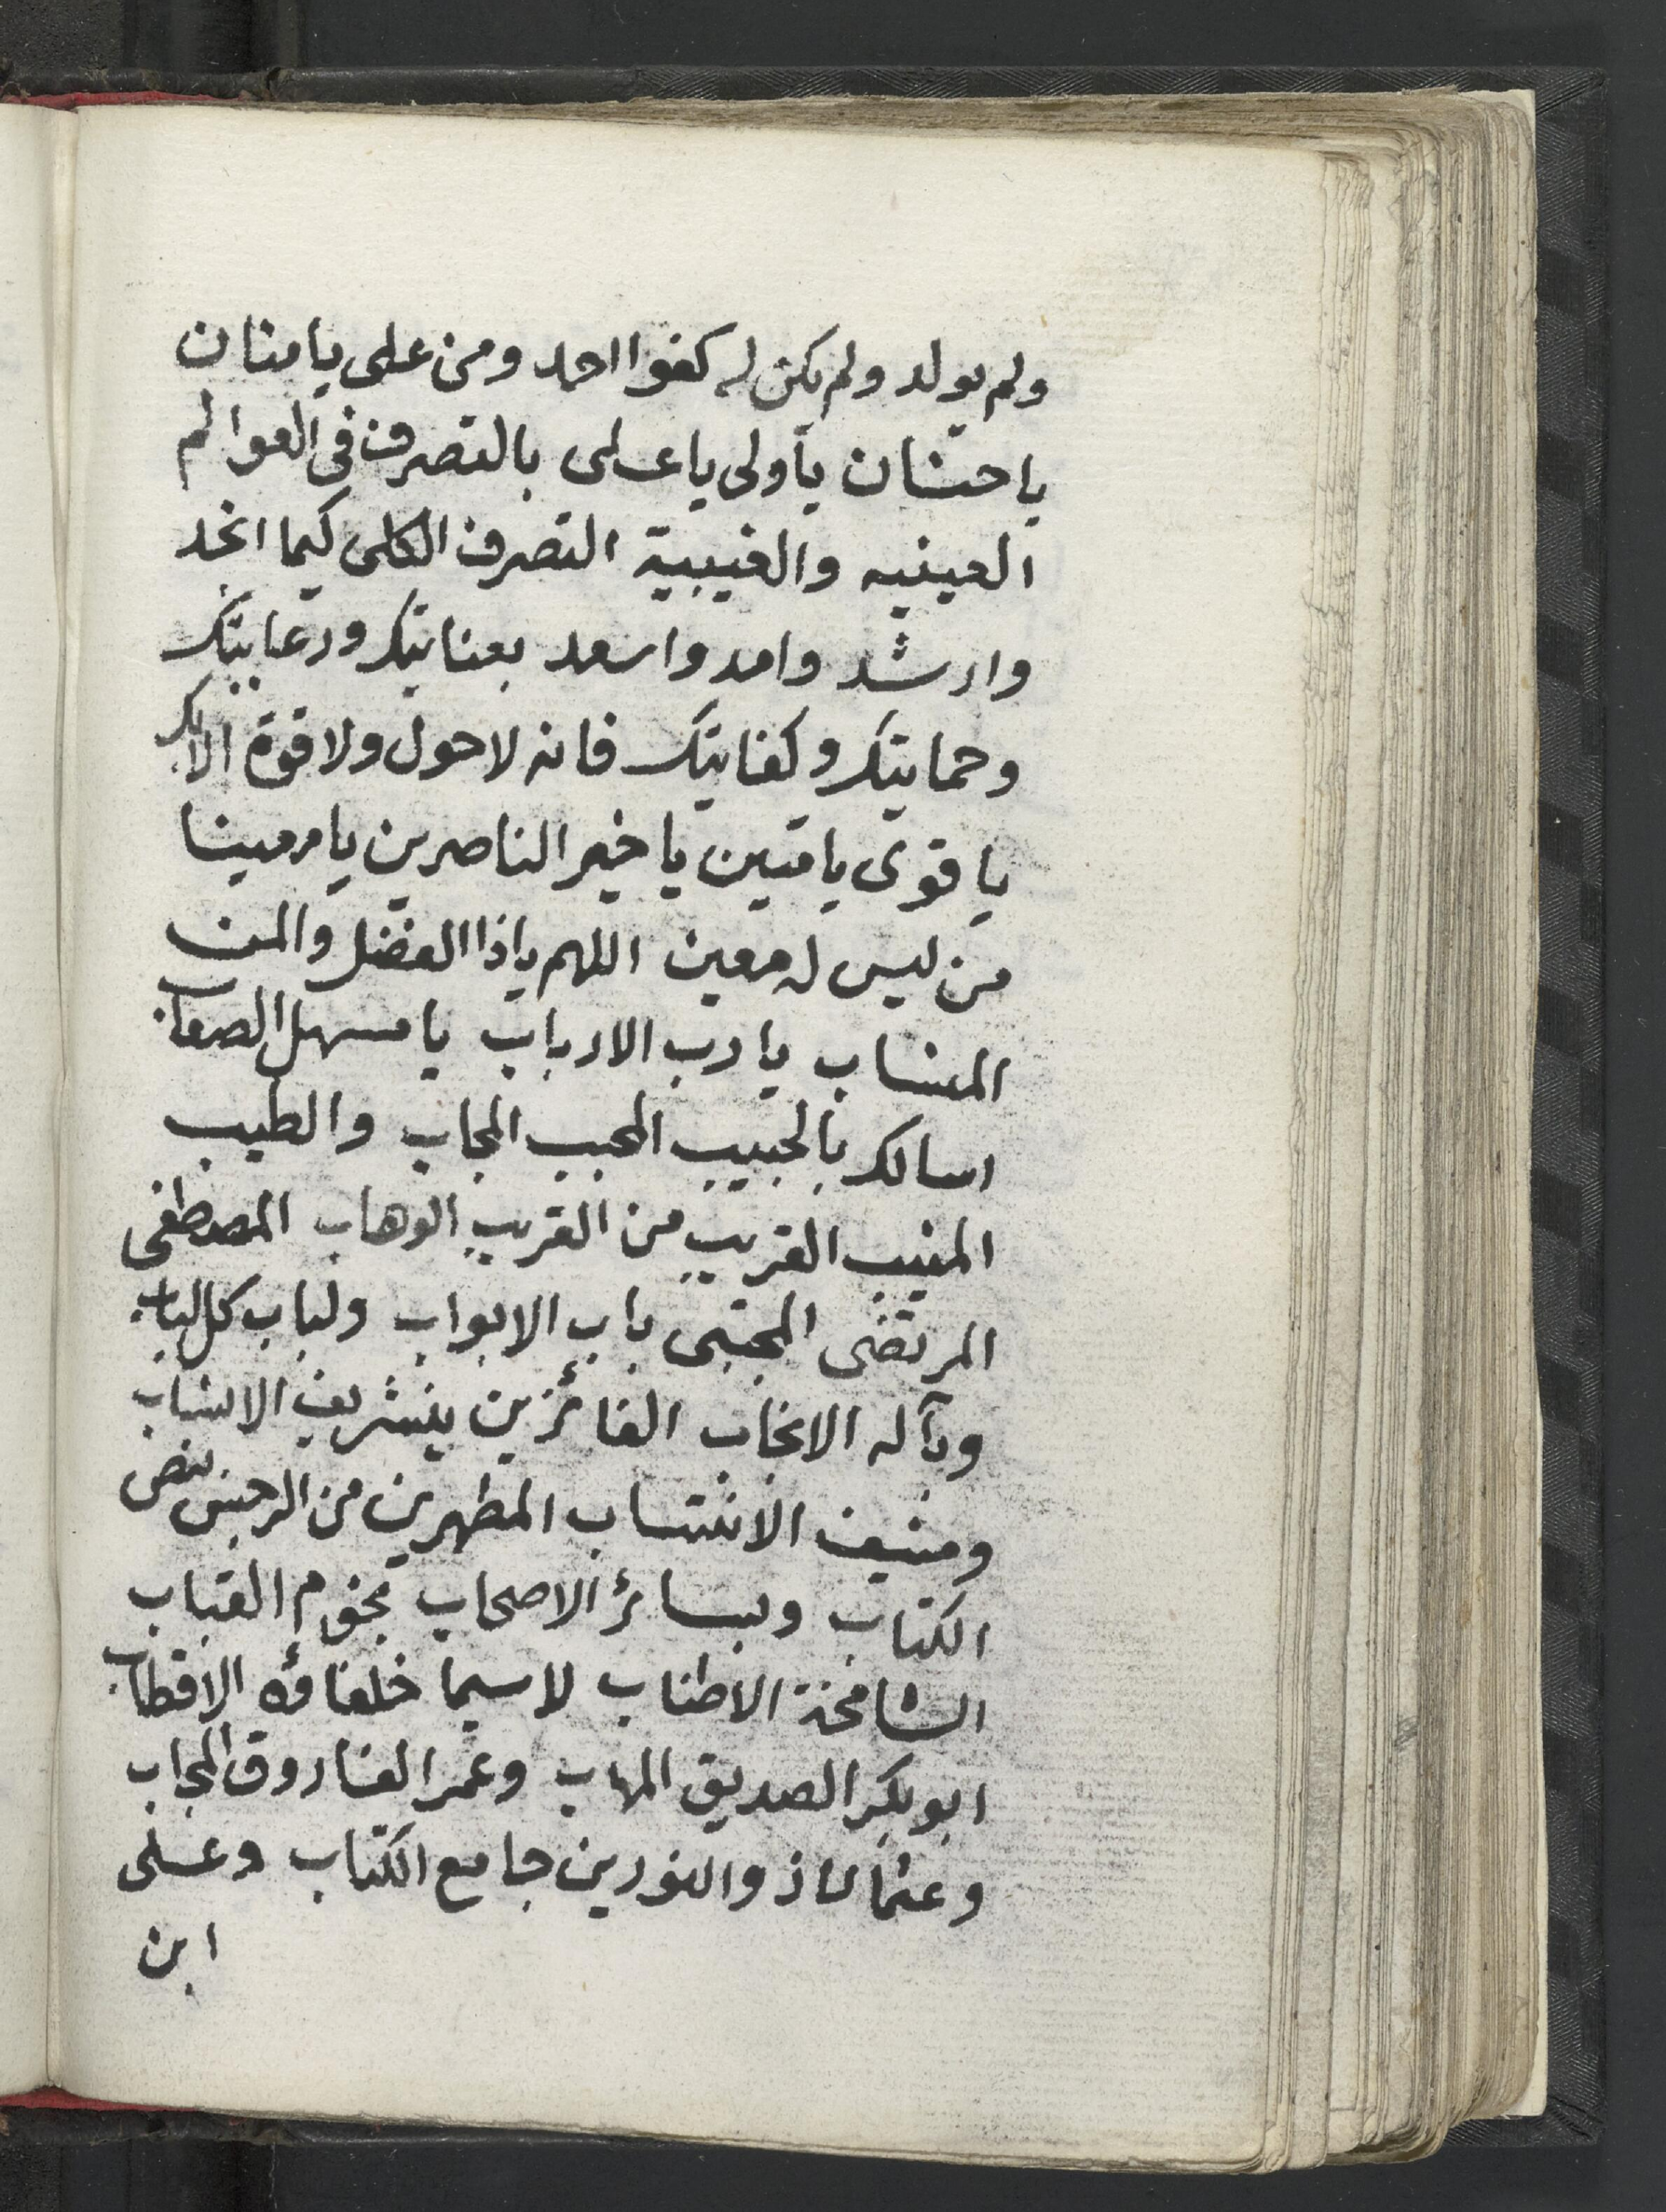 ولم يولد ولم يكن له كفوا احد ومن على يا منان
يا حنان يا ولى يا على بالتصرف فى العوالم
العينيه والغيبية التصرف الكلى كيما انجد
وارشد وامد واسعد بعنايتك ورعايتك
وحمايتك وكفايتك فانه لا حول ولا قوة الا بك
يا قوى يا متين يا خير الناصرين يا معينا
من ليس له معين اللهم يا ذا الفضل والمن
المنساب يا رب الارباب يا مسهل الصعاب
اسالك بالحبيب المحبب المجاب والطيب
المنيب القريب من القريب الوهاب المصطفى
المرتضى المجتبى باب الابواب ولباب كل لباب
وبآله الانجاب الفائزين بشريف الانساب
ومنيف الانتساب المطهرين من الرجس بنص
الكتاب وبسائر الاصحاب نجوم القباب
الشامخة الاطناب لاسيما خلفاؤه الاقطاب
ابو بكر الصديق المهاب وعمر الفاروق المجاب
وعثمان ذو النورين جامع الكتاب وعلى
ابن